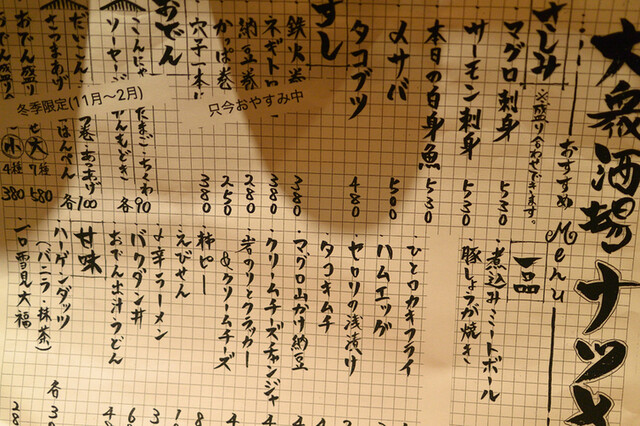 大衆酒場ナツメ
おすすめMenu
さしみ
※盛り合わせできます。
マグロ刺身 530
サーモン刺身 530
本日の白身魚 530
〆サバ 500
タコブツ 480
すし
鉄火巻 380
ネギトロ
納豆巻 280
かっぱ巻 250
穴子一本 380
只今おやすみ中
おでん
冬季限定(11月〜2月)
こんにゃ たまご・ちくわ 各90
ソーセージ がんもどき
だいこん つ巻・あつあげ 各100
さつまあげ はんぺん
おでん盛り 大 7種 580
おでん盛り 小 4種 380
一品
煮込みミートボール
豚しょうが焼き
ひとロカキフライ
ハムエッグ
セロリの浅漬け
タコキムチ
マグロ山かけ納豆
クリームチーズチャンジャ
岩のりとクラッカー
&クリームチーズ
柿ピー
えびせん
辛ラーメン
バクダン丼
おでん出汁うどん
甘味
ハーゲンダッツ
(バニラ・抹茶) 各
一口雪見大福